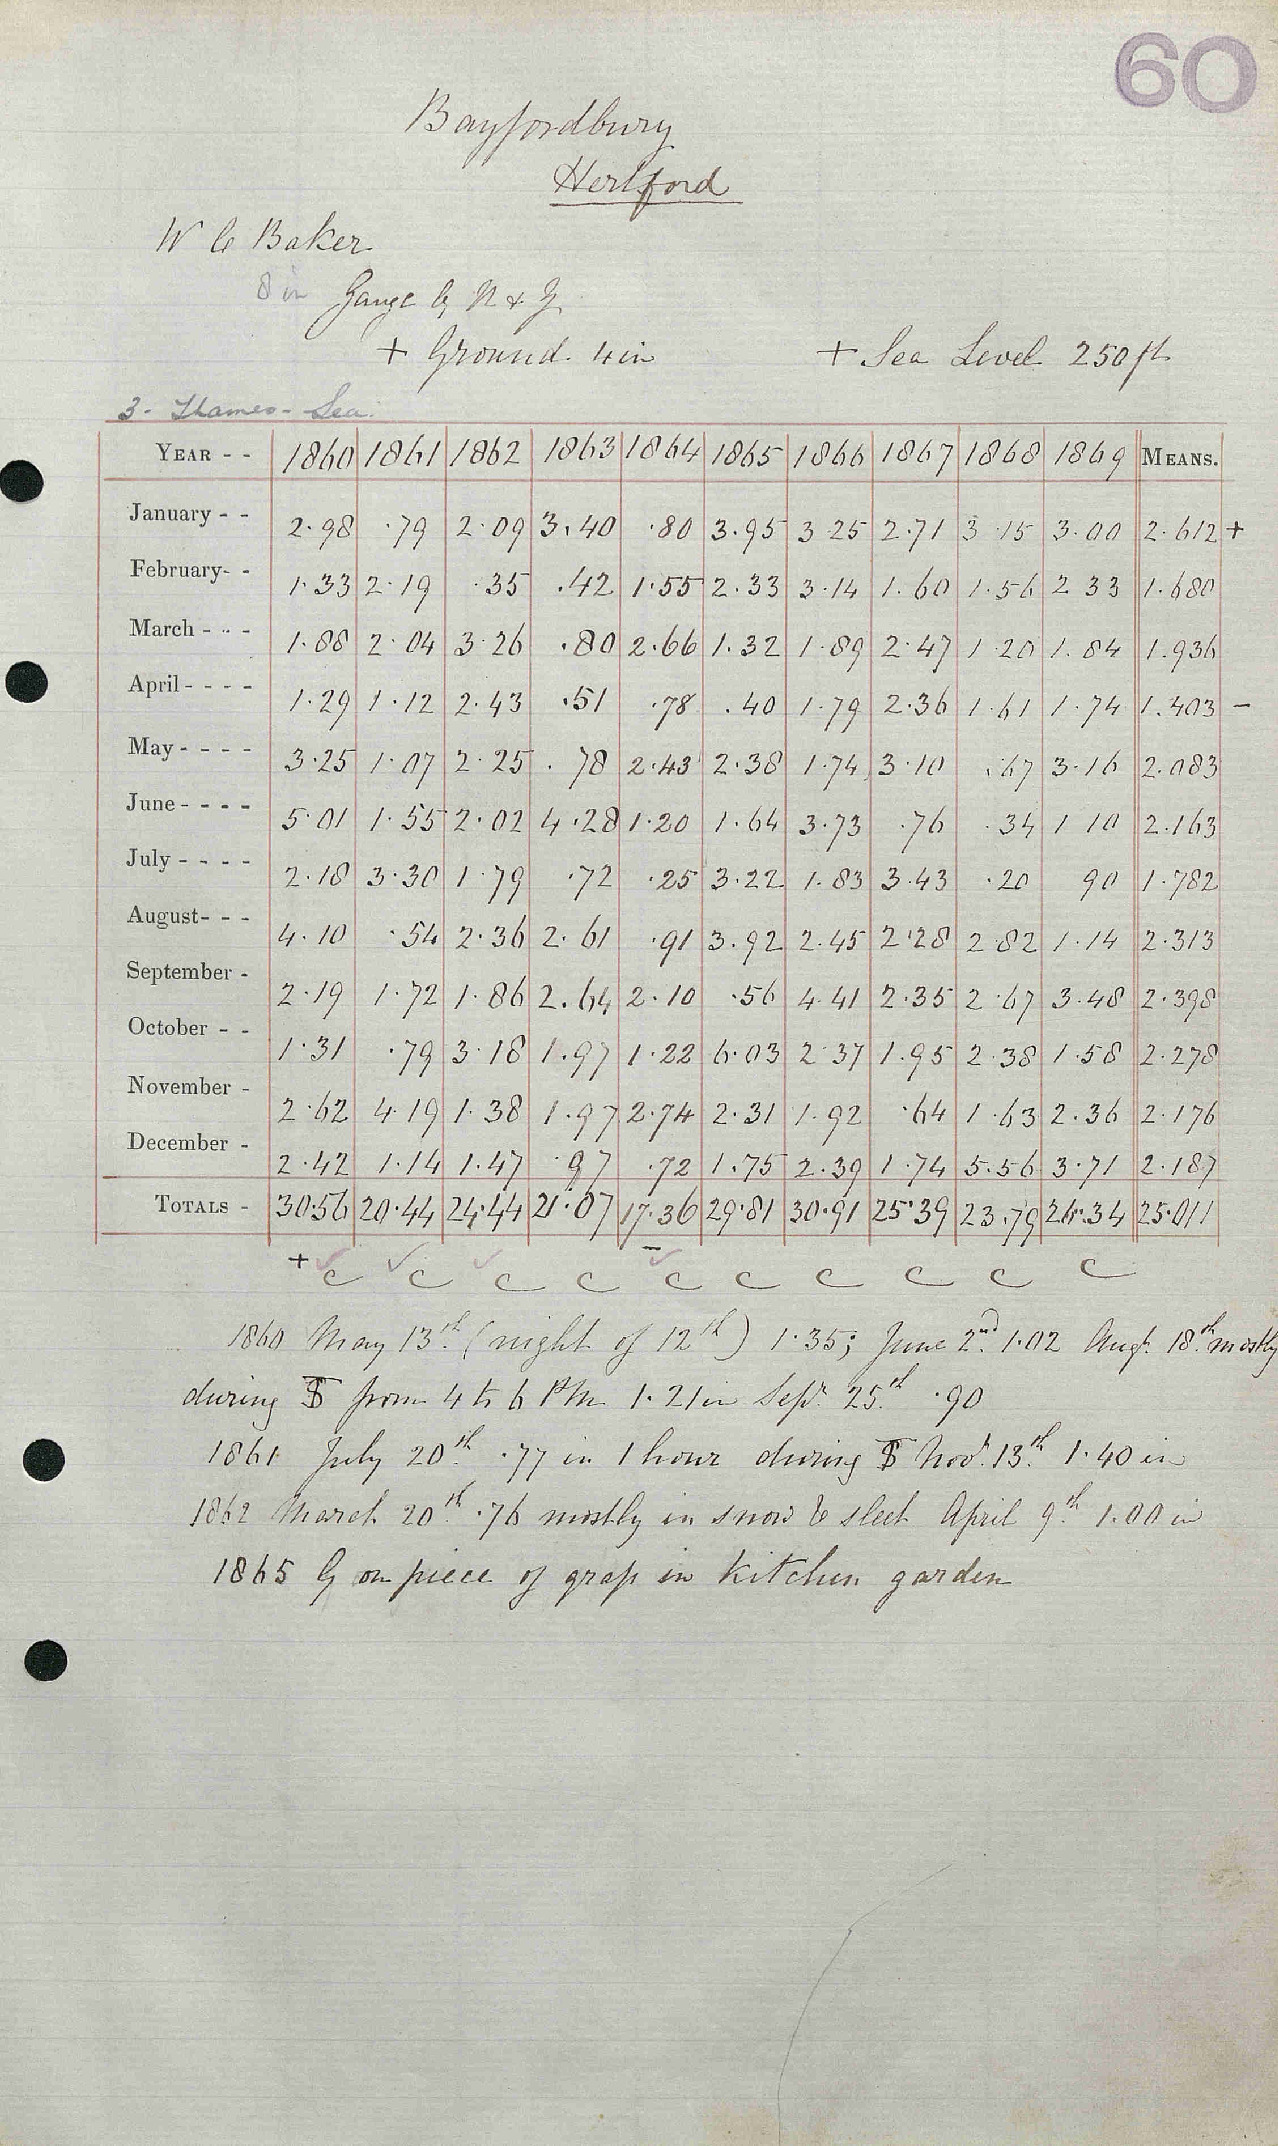 60
Bayfordbury
Hertford
W C Baker
8 in Gauge by N & Z
+ Ground 4 in + Sea Level 250 ft
3 - Thames - Sea.
YEAR - - 1860 1861 1862 1863 1864 1865 1866 1867 1868 1869 MEANS.
January - - 2.98 .79 2.09 3.40 .80 3.95 3.25 2.71 3.15 3.00 2.612 +
February- - 1.33 2.19 .35 .42 1.55 2.33 3.14 1.60 1.56 2.33 1.680
March - - - 1.88 2.04 3.26 .80 2.66 1.32 1.89 2.47 1.20 1.84 1.936
April - - - - 1.29 1.12 2.43 .51 .78 .40 1.79 2.36 1.61 1.74 1.403 -
May - - - - 3.25 1.07 2.25 .78 2.43 2.38 1.74 3.10 .67 3.16 2.083
June - - - - 5.01 1.55 2.02 4.28 1.20 1.64 3.73 .76 .34 1.10 2.163
July - - - - 2.18 3.30 1.79 .72 .25 3.22 1.83 3.43 .20 90 1.782
August- - - 4.10 .54 2.36 2.61 .91 3.92 2.45 2.28 2.82 1.14 2.313
September - 2.19 1.72 1.86 2.64 2.10 .56 4.41 2.35 2.67 3.48 2.398
October - - 1.31 .79 3.18 1.97 1.22 6.03 2.37 1.95 2.38 1.58 2.278
November - 2.62 4.19 1.38 1.97 2.74 2.31 1.92 .64 1.63 2.36 2.176
December - 2.42 1.14 1.47 .97 .72 1.75 2.39 1.74 5.56 3.71 2.187
TOTALS - 30.56 20.44 24.44 21.07 17.36 29.81 30.91 25.39 23.79 26.34 25.011
+ -
c c c c c c c c c c
1860 May 13th (night of 12th) 1.35; June 2nd 1.02 Augt 18th mostly
during from 4 to 6 PM 1.21 in Sept 25th .90
1861 July 20th .77 in 1 hour during Nov. 13th 1.40 in
1862 March 20th .76 mostly in snow & sleet April 9th 1.00 in
1865 G on piece of grass in kitchen garden